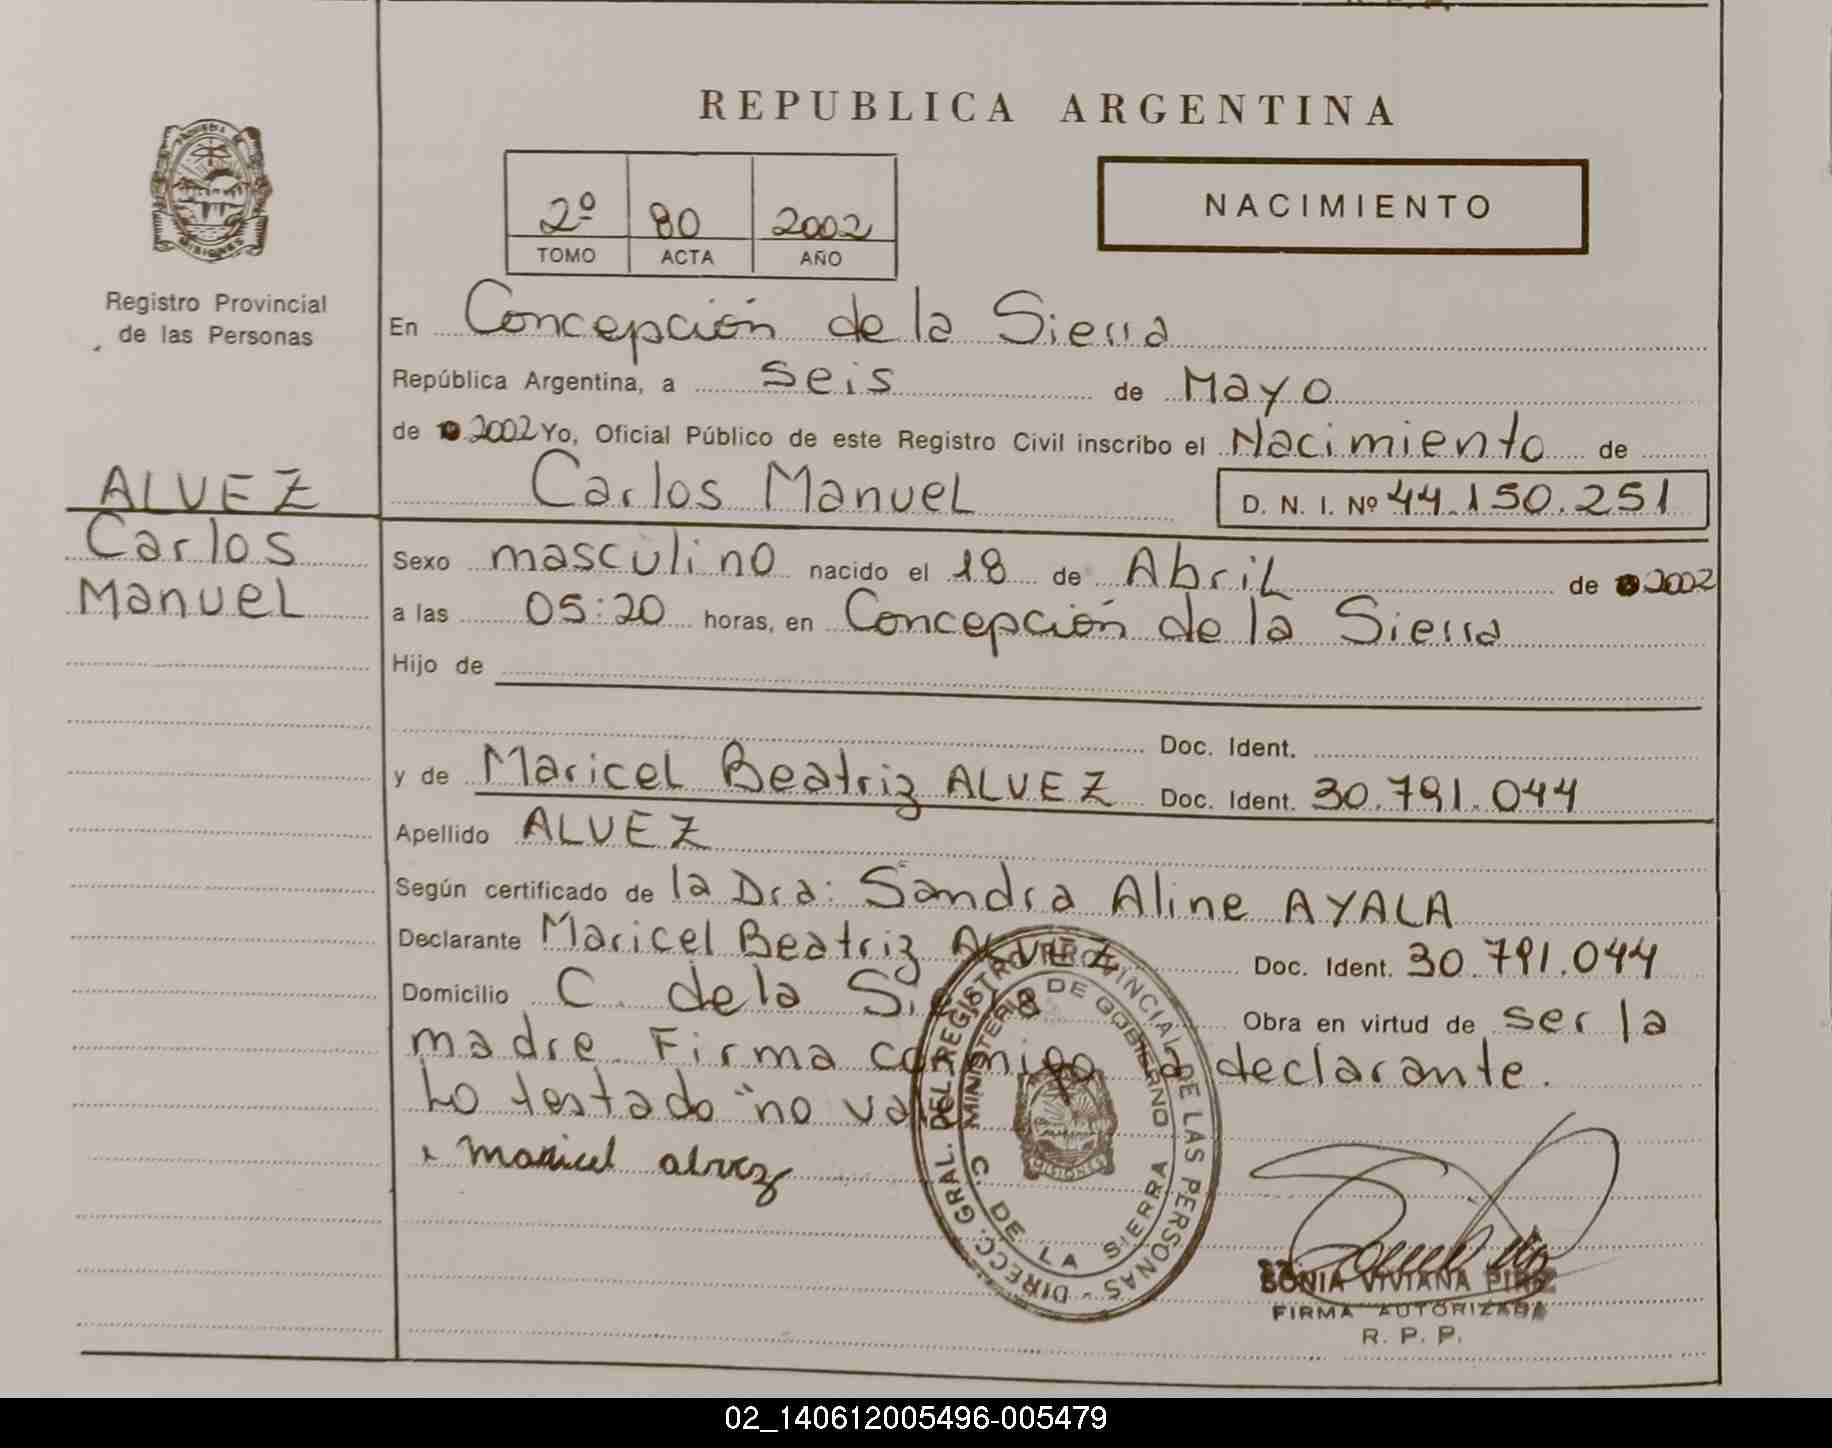 REPUBLICA ARGENTINA
2º 80 2002
TOMO ACTA AÑO
NACIMIENTO
MISIONES
Registro Provincial
de las Personas
ALVEZ
Carlos
Manuel
En Concepción de la Sierra
República Argentina, a seis de Mayo
de 2002 Yo, Oficial Público de este Registro Civil inscribo el Nacimiento de
Carlos Manuel D. N. I. Nº 44.150.251
Sexo masculino nacido el 18 de Abril de 2002
a las 05:20 horas, en Concepción de la Sierra
Hijo de
Doc. Ident.
y de Maricel Beatriz ALVEZ Doc. Ident. 30.791.044
Apellido ALVEZ
Según certificado de la Dra: Sandra Aline AYALA
Declarante Maricel Beatriz ALVEZ Doc. Ident. 30.791.044
Domicilio C. de la Sierra Obra en virtud de ser la
madre. Firma conmigo la declarante.
Lo testado "no vale
maricel alvez
DIRECC. GRAL. DEL REGISTRO PROVINCIAL DE LAS PERSONAS -
MINISTERIO DE GOBIERNO
C. DE LA SIERRA
MISIONES
SONIA VIVIANA
FIRMA AUTORIZADA
R. P. P.
02_140612005496-005479